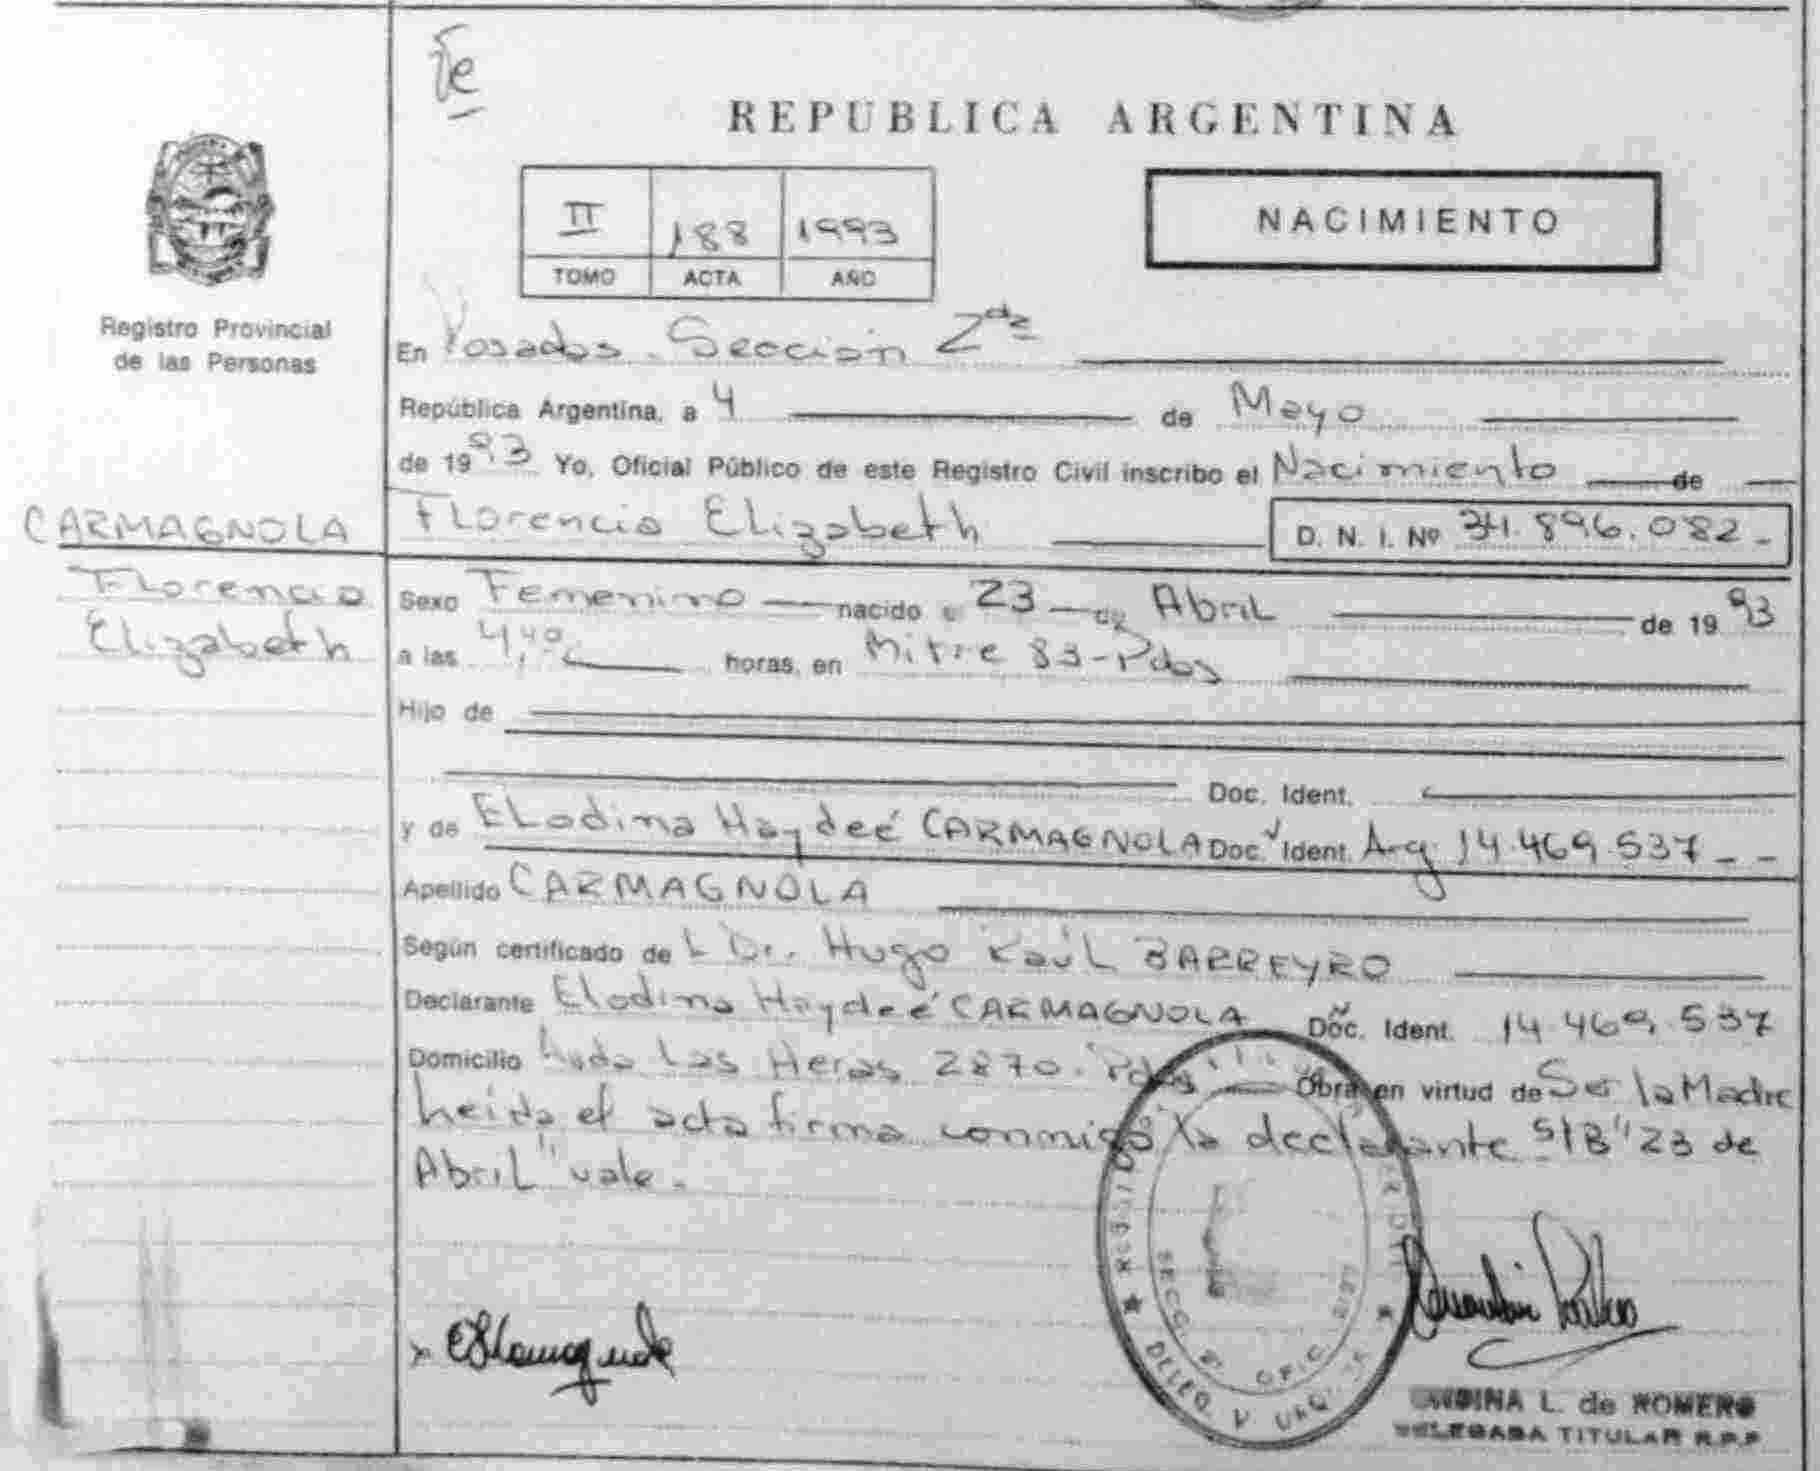 REPUBLICA ARGENTINA
II 188 1993
TOMO ACTA AÑO
NACIMIENTO
Registro Provincial
de las Personas
En Posadas. Sección 2da
República Argentina, a 4 de Mayo
de 1993 Yo, Oficial Público de este Registro Civil inscribo el Nacimiento de
Florencia Elizabeth D. N. I. Nº 34.896.082-
CARMAGNOLA
Florencia
Elizabeth
Sexo Femenino nacido 23 de Abril de 1993
a las horas, en Mitre 83-Pdas
Hijo de
Doc. Ident.
y de Elodina Haydeé CARMAGNOLA Doc. Ident. Arg. 14.469.537--
Apellido CARMAGNOLA
Según certificado de L Dr. Hugo Raúl BARREYRO
Declarante Elodina Haydeé CARMAGNOLA Doc. Ident. 14.469.537
Domicilio Avda Las Heras 2870. Pdas Obra en virtud de Ser la Madre
Leída el acta firma conmigo la declarante S/B "23 de
Abril" vale.
L. de ROMERO
TITULAR R.P.P